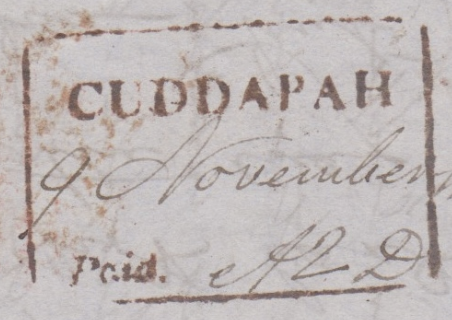 CUDDAPAH
9 November
Paid. A 2 D